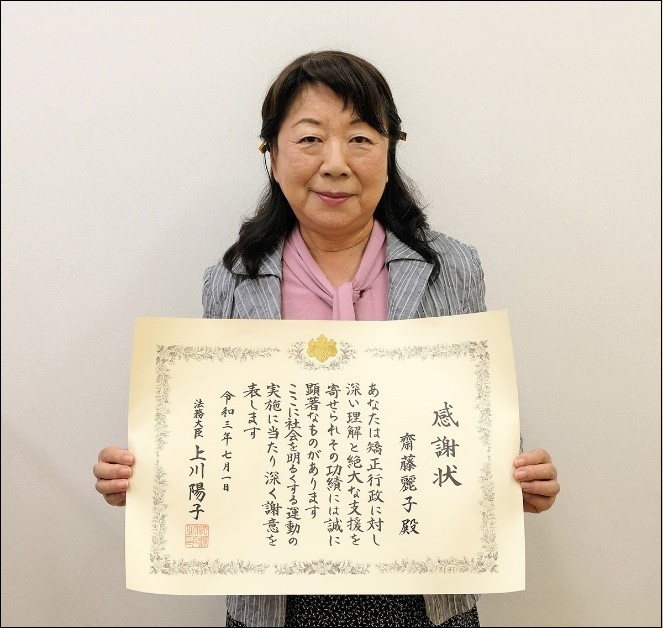 感謝状
齋藤麗子殿
あなたは矯正行政に対し
深い理解と絶大な支援を
寄せられその功績には誠に
顕著なものがあります
ここに社会を明るくする運動の
実施に当たり深く謝意を
表します
令和三年七月一日
法務大臣 上川陽子